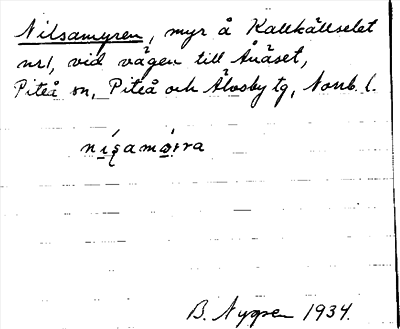 Nilsamyren, myr å Kallkällselet
nr 1, vid vägen till Ånäset,
Piteå sn, Piteå och Älvsby tg, Norrb. l.
B. Nygren 1934.